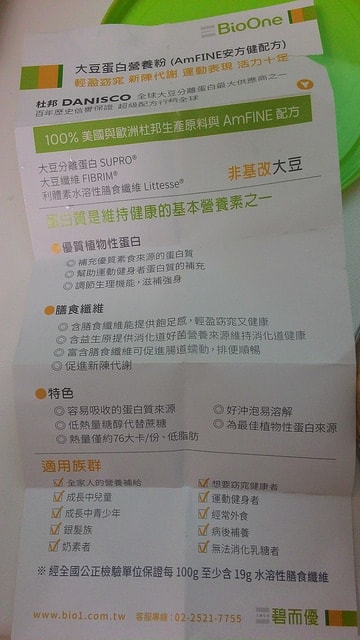 BioOne
大豆蛋白營養粉 (AmFINE安方健配方)
輕盈窈窕 新陳代謝 運動表現 活力十足
杜邦 DANISCO 全球大豆分離蛋白最大供應商之一
百年歷史信譽保證 超級配方行銷全球
100% 美國與歐洲杜邦生產原料與 AmFINE 配方
大豆分離蛋白 SUPRO®
大豆纖維 FIBRIM®
利體素水溶性膳食纖維 Littesse®
非基改大豆
蛋白質是維持健康的基本營養素之一
●優質植物性蛋白
◎補充優質素食來源的蛋白質
◎幫助運動健身者蛋白質的補充
◎調節生理機能，滋補強身
●膳食纖維
◎含膳食纖維能提供飽足感，輕盈窈窕又健康
◎含益生原提供消化道好菌營養來源維持消化道健康
◎富含膳食纖維可促進腸道蠕動，排便順暢
◎促進新陳代謝
●特色
◎容易吸收的蛋白質來源
◎好沖泡易溶解
◎低熱量糖醇代替蔗糖
◎為最佳植物性蛋白來源
◎熱量僅約76大卡/份、低脂肪
適用族群
全家人的營養補給
想要窈窕健康者
成長中兒童
運動健身者
成長中青少年
經常外食
銀髮族
病後補養
奶素者
無法消化乳糖者
※ 經全國公正檢驗單位保證每 100g 至少含 19g 水溶性膳食纖維
www.bio1.com.tw 客服專線:02-2521-7755
碧而優